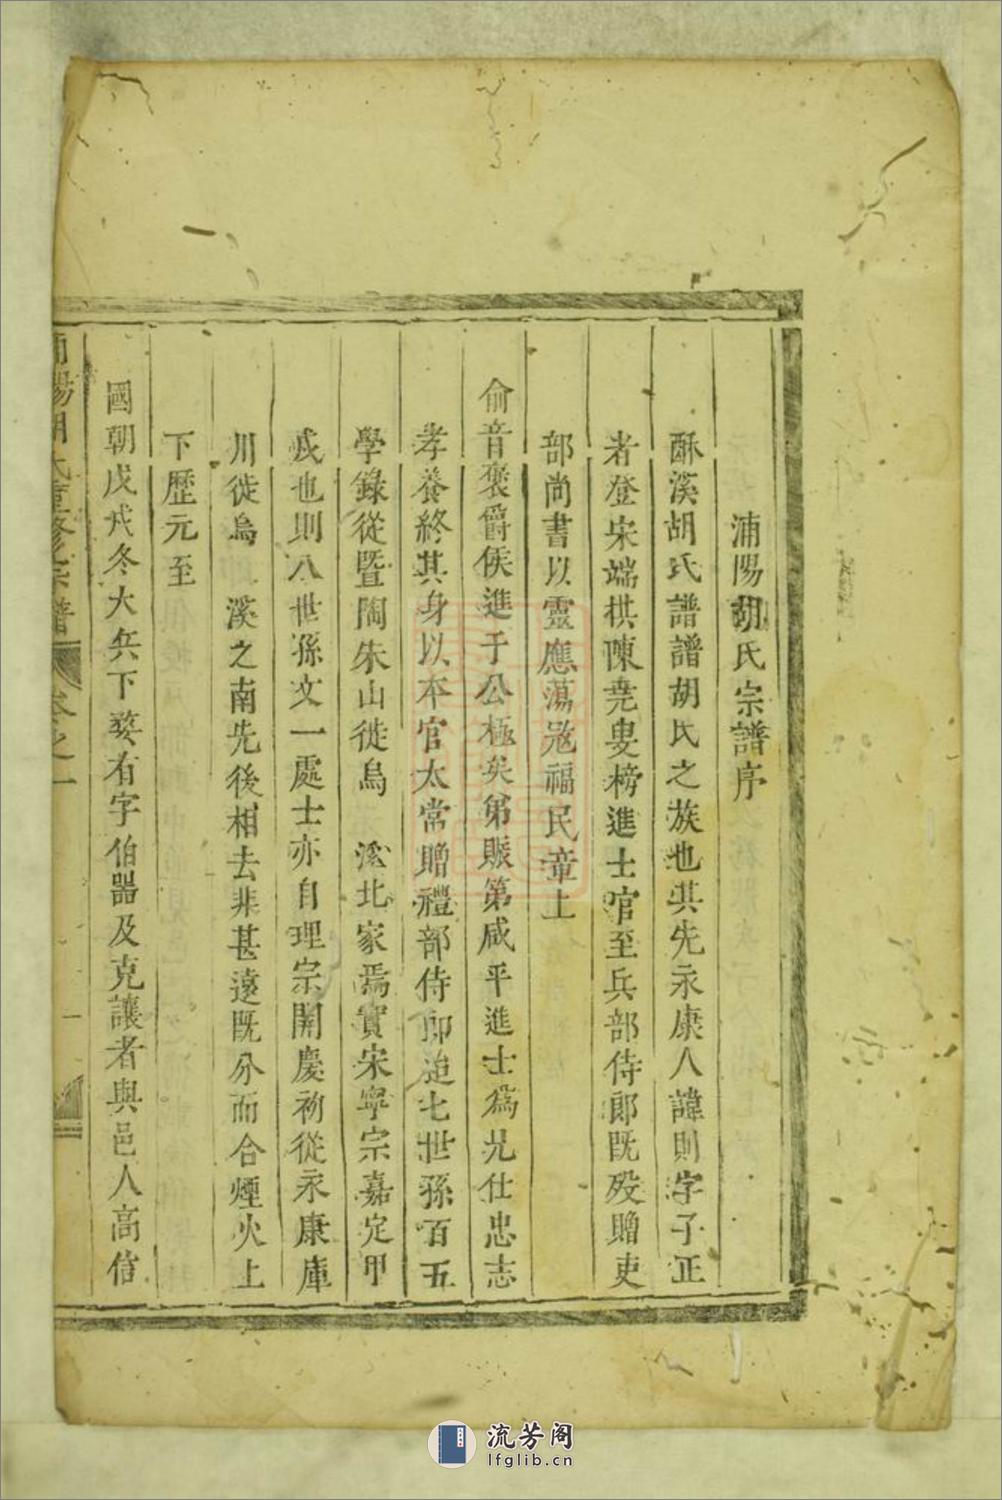 浦陽胡氏宗譜序
酥溪胡氏譜譜胡氏之族也其先永康人諱則字子正
者登宋端拱陳堯叟榜進士官至兵部侍郎既歿贈吏
部尚書以靈應蕩冦福民章上
俞音褒爵侯進于公極矣弟賑第咸平進士為兄仕忠志
孝養終其身以本官太常贈禮部侍郎迨七世孫百五
學錄從暨陶朱山徙烏 溪北家焉實宋寧宗嘉定甲
戌也則八世孫文一處士亦自理宗開慶初從永康庫
川徙烏 溪之南先後相去非甚遠既分而合煙火上
下歷元至
國朝戊戌冬大兵下婺有字伯器及克讓者與邑人高信
浦陽胡氏重修宗譜 卷之一
流芳阁
lfglib.cn